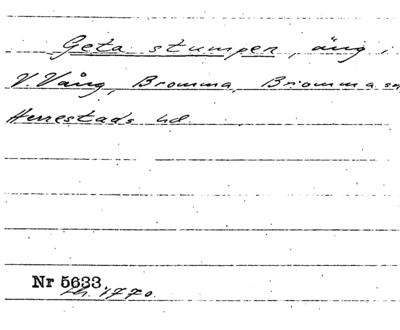 Geta stumpen, äng i
V Vång, Bromma, Bromma sn
Herrestads hd
Nr 5633
LH. 1770.